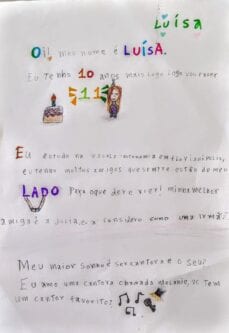 Luísa
Oi! meu nome é LUÍSA.
Eu tenho 10 anos mais logo logo vou fazer
11
Eu estudo na escola
eu tenho muitos amigos que sempre estão do meu
LADO Para o que der e vier! minha melhor
amiga é a Julia, eu a considero como uma irmã!
Meu maior sonho é ser cantora e o seu?
Eu amo uma cantora chamada vc tem
um cantor favorito?